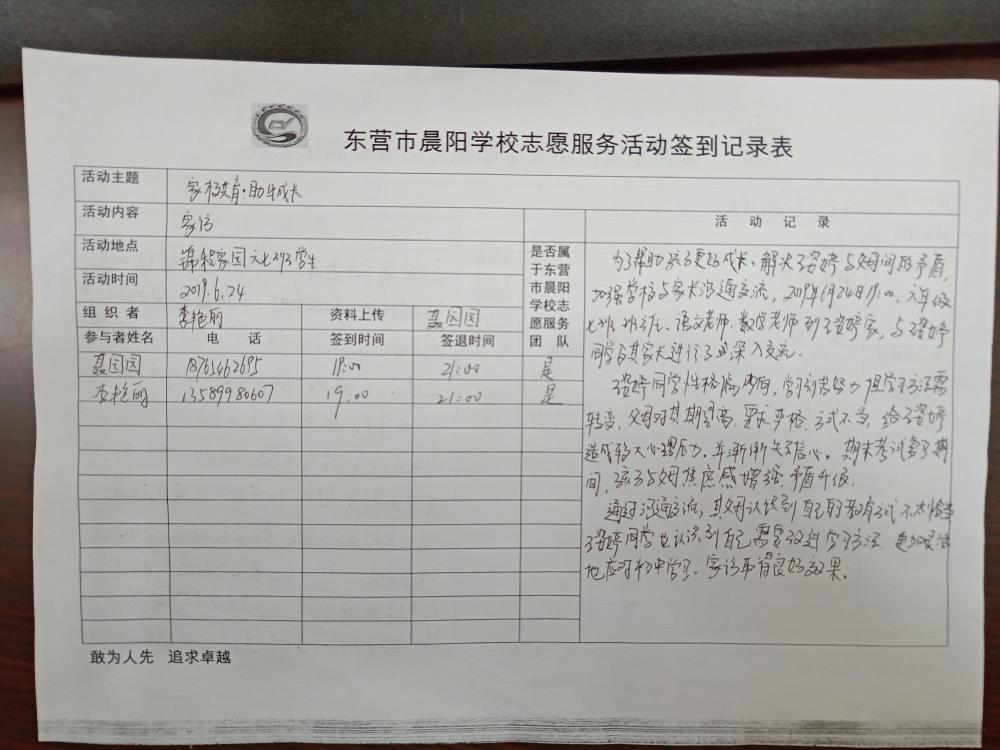 东营市晨阳学校志愿服务活动签到记录表
活动主题 家校共育·助生成长
活动内容 家访
活动地点 锦程家园 六七班学生
活动时间 2019.6.24
组织者 李艳丽 资料上传 聂园园
参与者姓名 电话 签到时间 签退时间
是否属
于东营
市晨阳
学校志
愿服务
团队
聂园园 18765462695 19:00 21:00 是
李艳丽 13589980607 19:00 21:00 是
活动记录
为了帮助孩子更好成长、解决 姿婷与父母间的矛盾,
加强学校与家长沟通交流, 2019年6月24日19:00, 六年级
七班班主任、语文老师、数学老师到 姿婷家, 与 姿婷
同学及其家长进行了 深入交流。
姿婷同学性格偏内向, 学习刻苦努力但学习方法需
转变, 父母对其期望高、要求严格、方式不当, 给 姿婷
造成 大心理压力, 并渐渐失去信心。期末考试复习期
间, 孩子与父母焦虑感增强, 矛盾升级.
通过沟通交流, 其父母认识到自己的教育方式不太恰当
姿婷同学也认识到自己需要改进学习方法, 更加灵活
地应对初中学习. 家访取得良好效果。
敢为人先 追求卓越